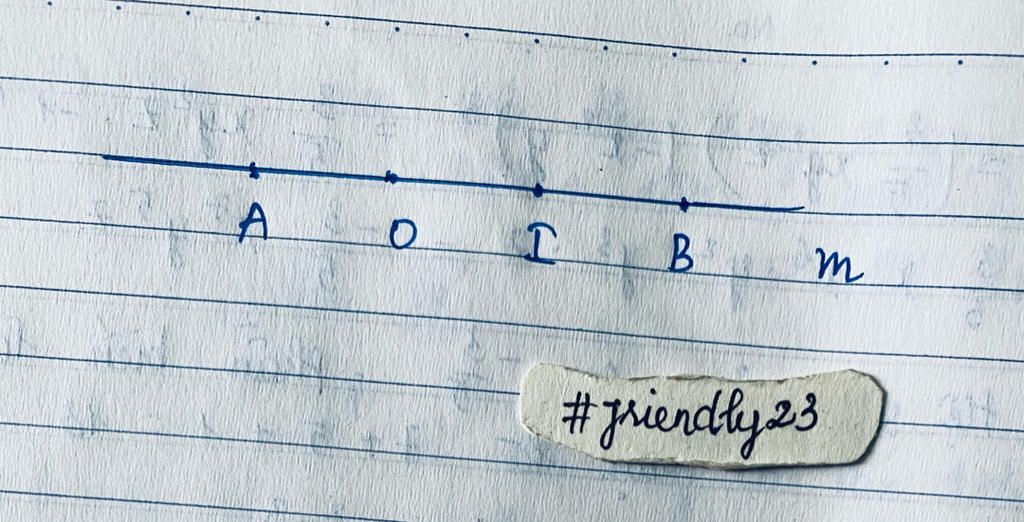 A O I B m
#friendly23